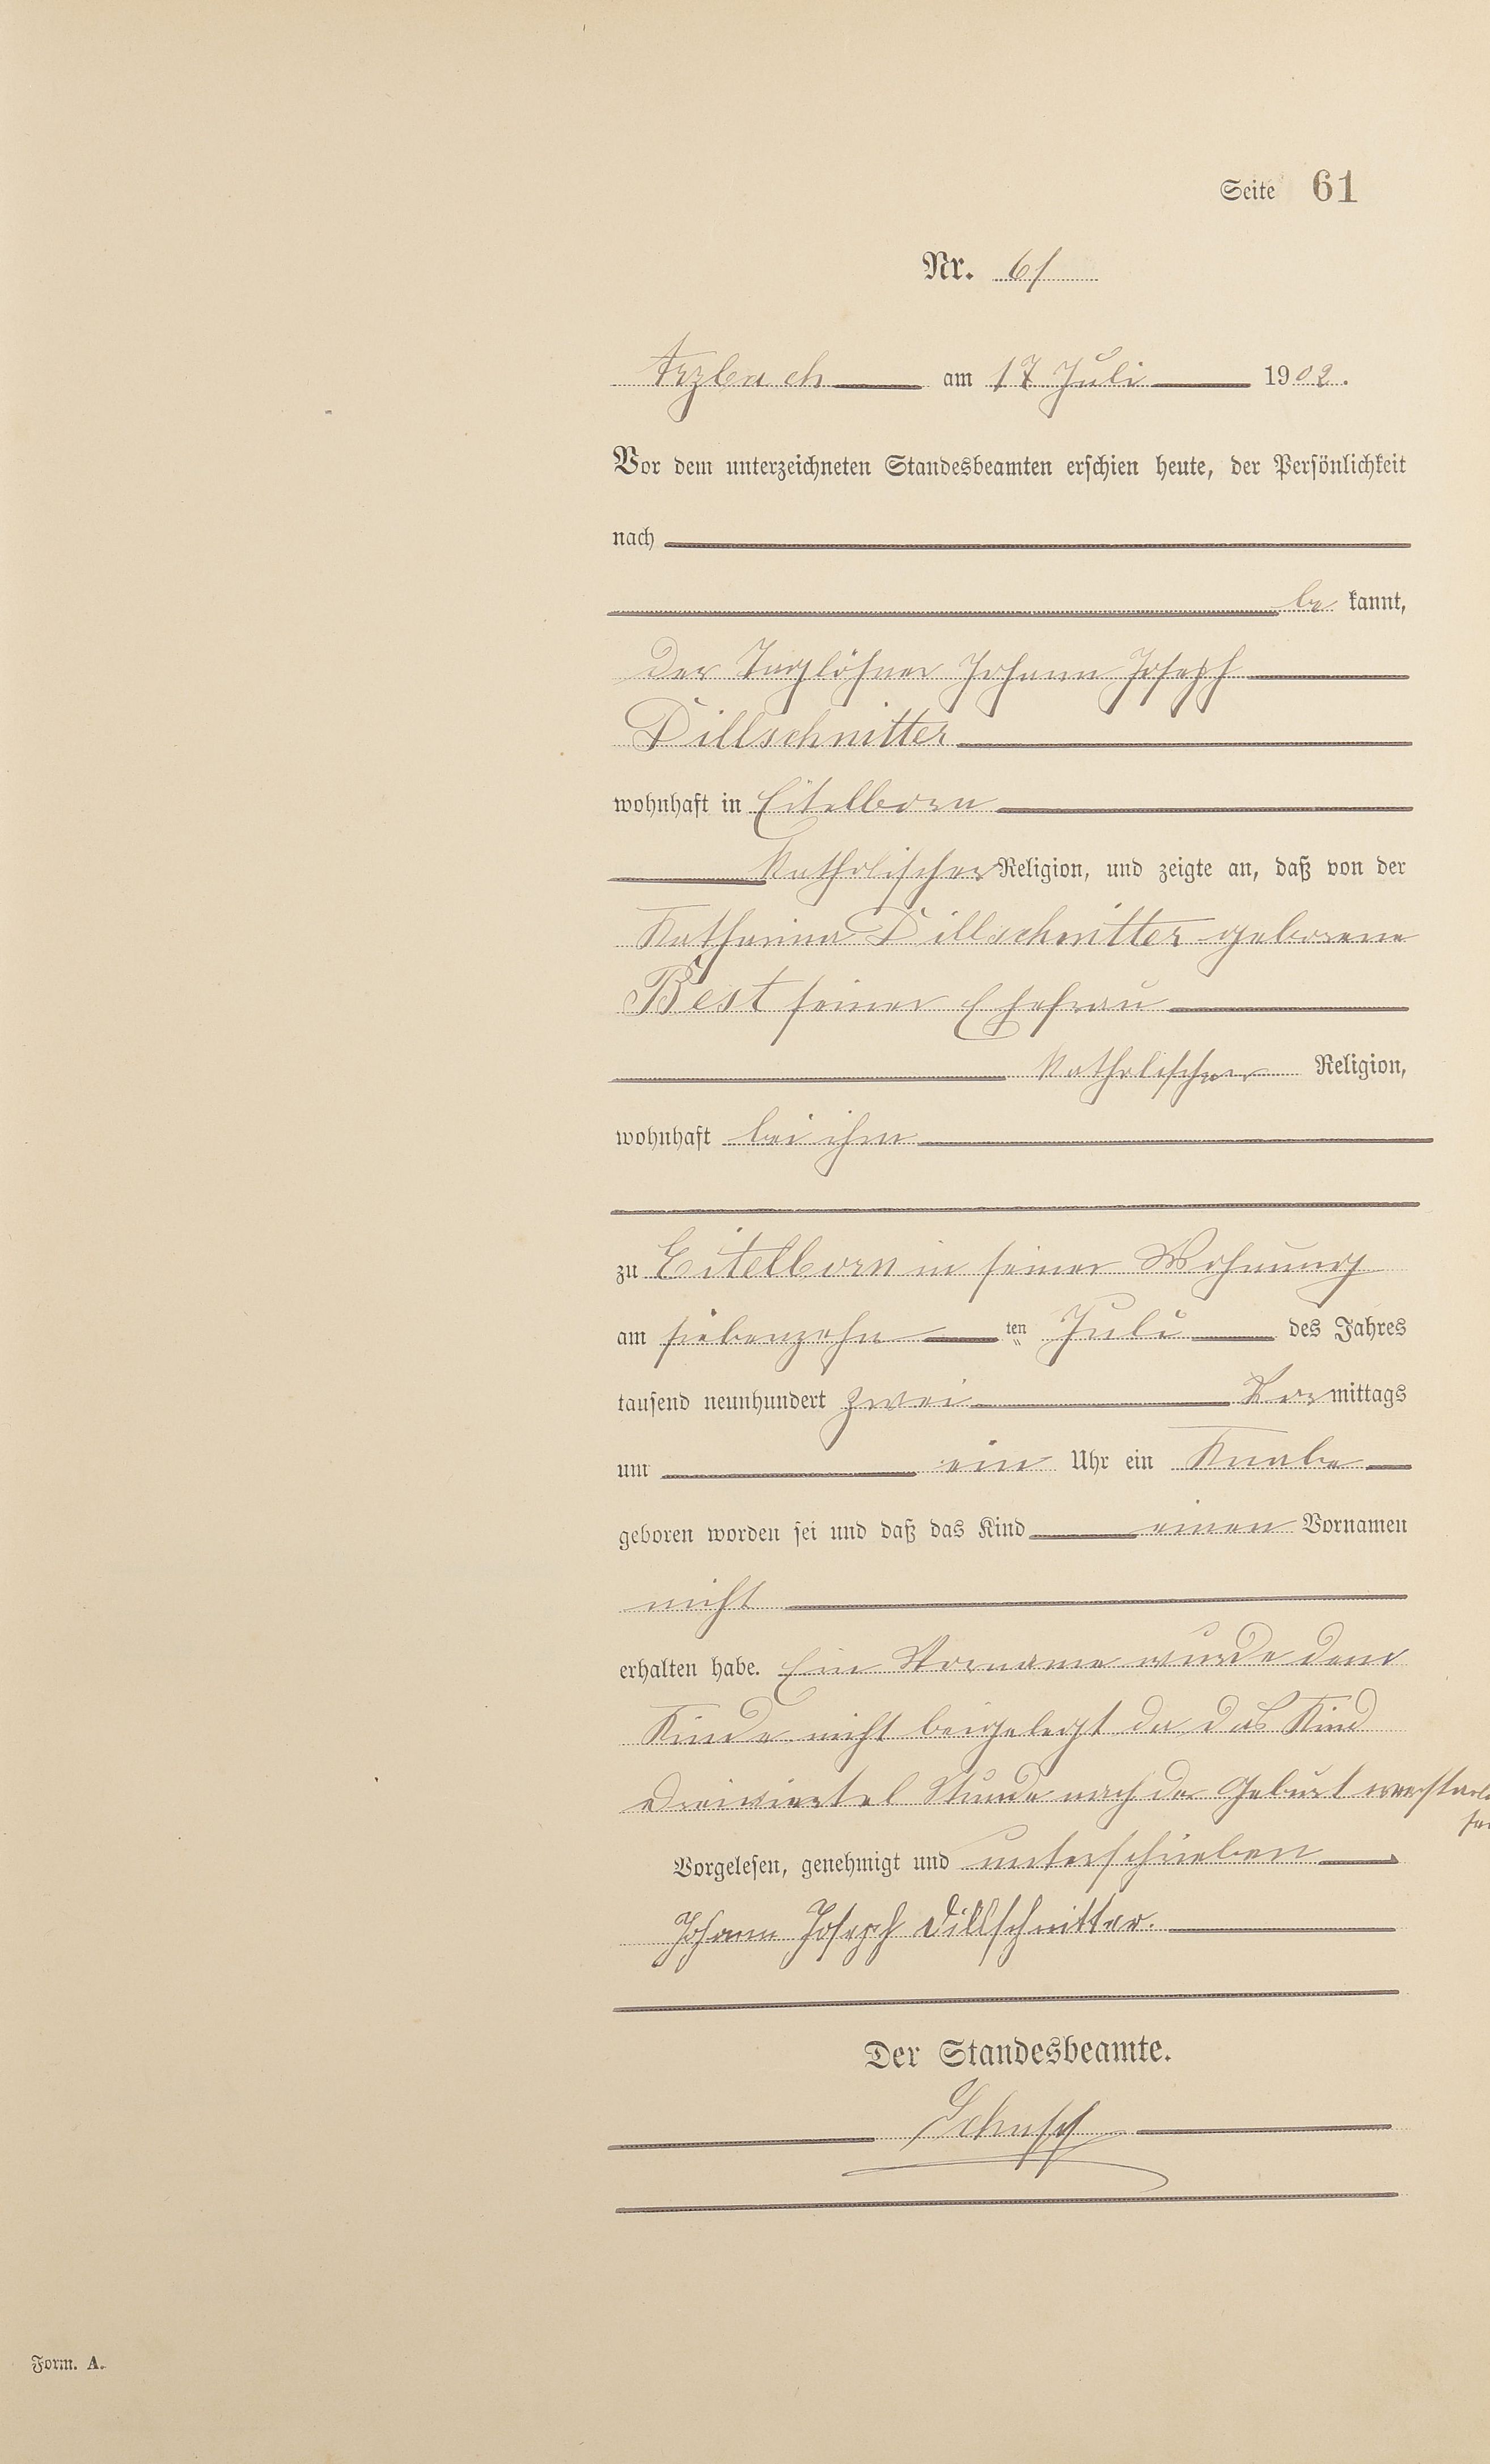 Seite 61
Nr. 61
Arzbach am 17 Juli 1902.
Vor dem unterzeichneten Standesbeamten erschien heute, der Persönlichkeit
nach
be kannt,
der Taglöhner Johann Joseph
Dillschnitter
wohnhaft in Eitelborn
katholischer Religion, und zeigte an, daß von der
Katharina Dillschnitter geborene
Best seiner Ehefrau
katholischer Religion,
wohnhaft bei ihm
zu Eitelborn in seiner Wohnung
am siebenzehn ten Juli des Jahres
tausend neunhundert zwei Vor mittags
um ein Uhr ein Knabe
geboren worden sei und daß das Kind einen Vornamen
nicht
erhalten habe. Ein Vorname wurde dem
Kinde nicht beigelegt da das Kind
dreiviertel Stunde nach der Geburt
Vorgelesen, genehmigt und unterschrieben
Johann Joseph Dillschnitter.
Der Standesbeamte.
Schupp
Form. A.